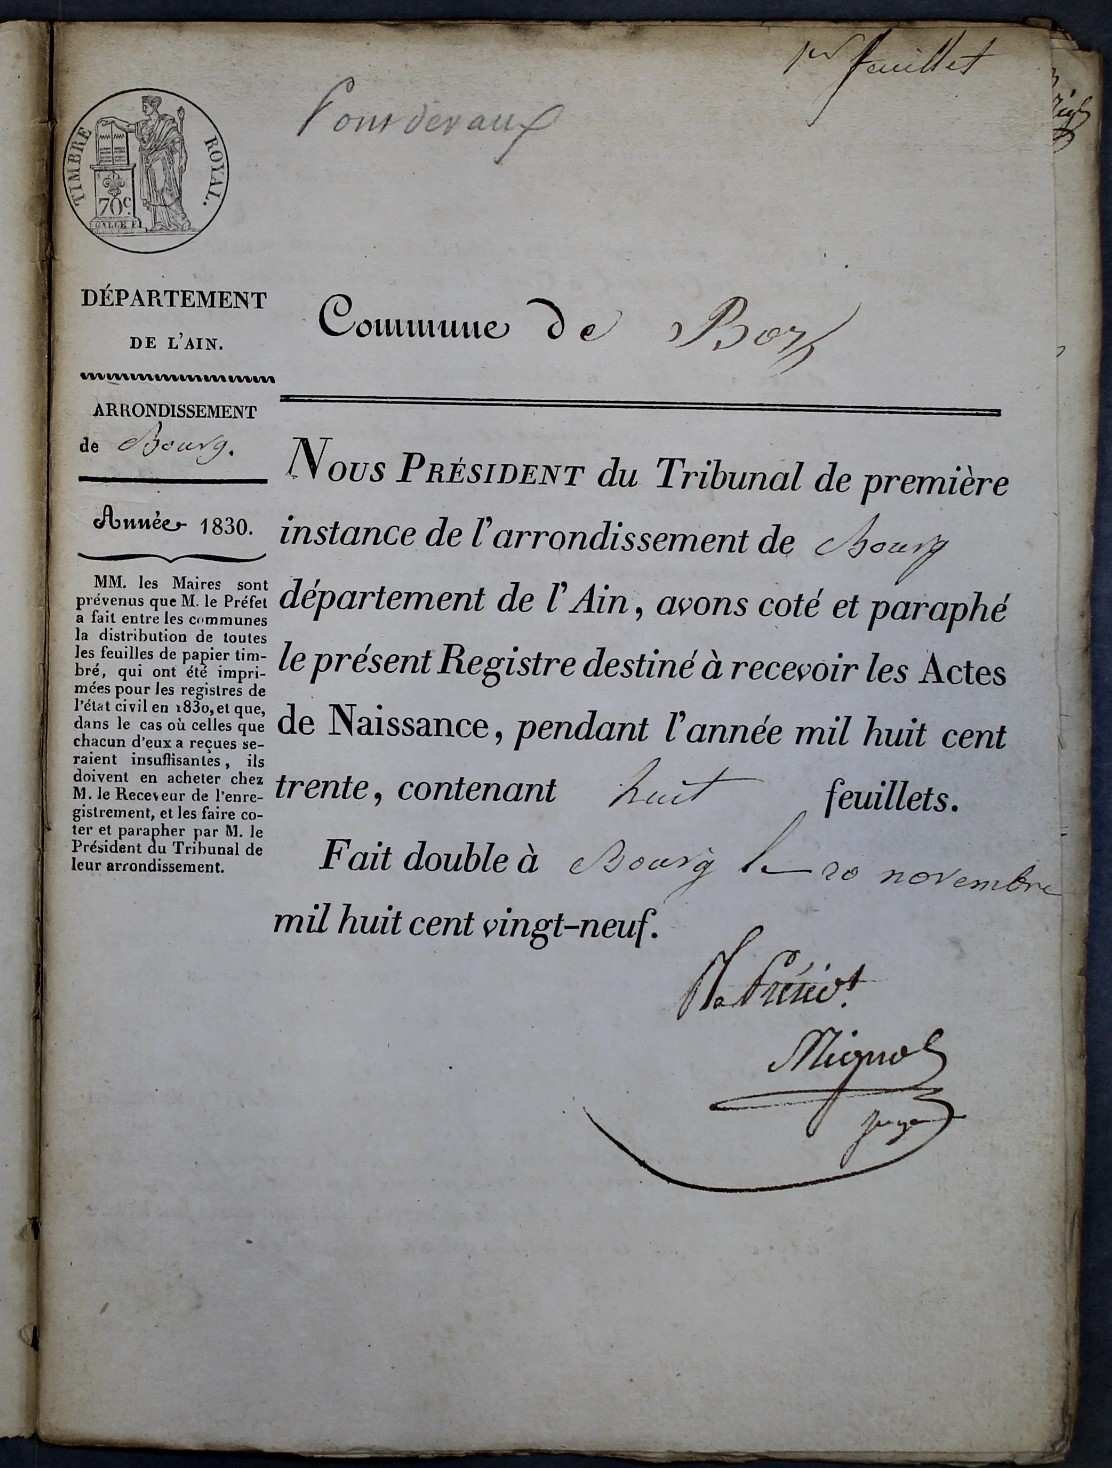 1er feuillet
Pontdevaux
TIMBRE ROYAL.
70c.
DÉPARTEMENT
DE L'AIN.
ARRONDISSEMENT
de Bourg.
Année 1830.
MM. les Maires sont
prévenus que M. le Préfet
a fait entre les communes
la distribution de toutes
les feuilles de papier tim-
bré, qui ont été impri-
mées pour les registres de
l'état civil en 1830, et que,
dans le cas où celles que
chacun d'eux a reçues se-
raient insuffisantes, ils
doivent en acheter chez
M. le Receveur de l'enre-
gistrement, et les faire co-
ter et parapher par M. le
Président du Tribunal de
leur arrondissement.
Commune de Boz
NOUS PRÉSIDENT du Tribunal de première
instance de l'arrondissement de Bourg
département de l'Ain, avons coté et paraphé
le présent Registre destiné à recevoir les Actes
de Naissance, pendant l'année mil huit cent
trente, contenant huit feuillets.
Fait double à Bourg le 20 novembre
mil huit cent vingt-neuf.
juge